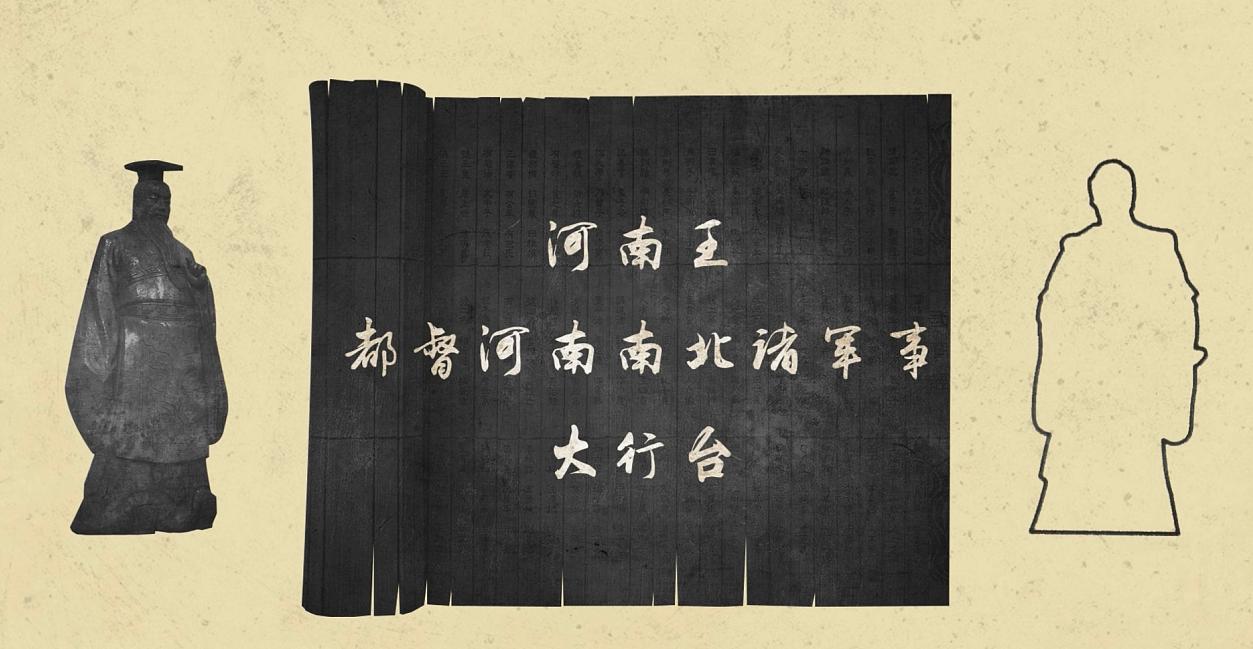 河南王
都督河南南北诸军事
大行台